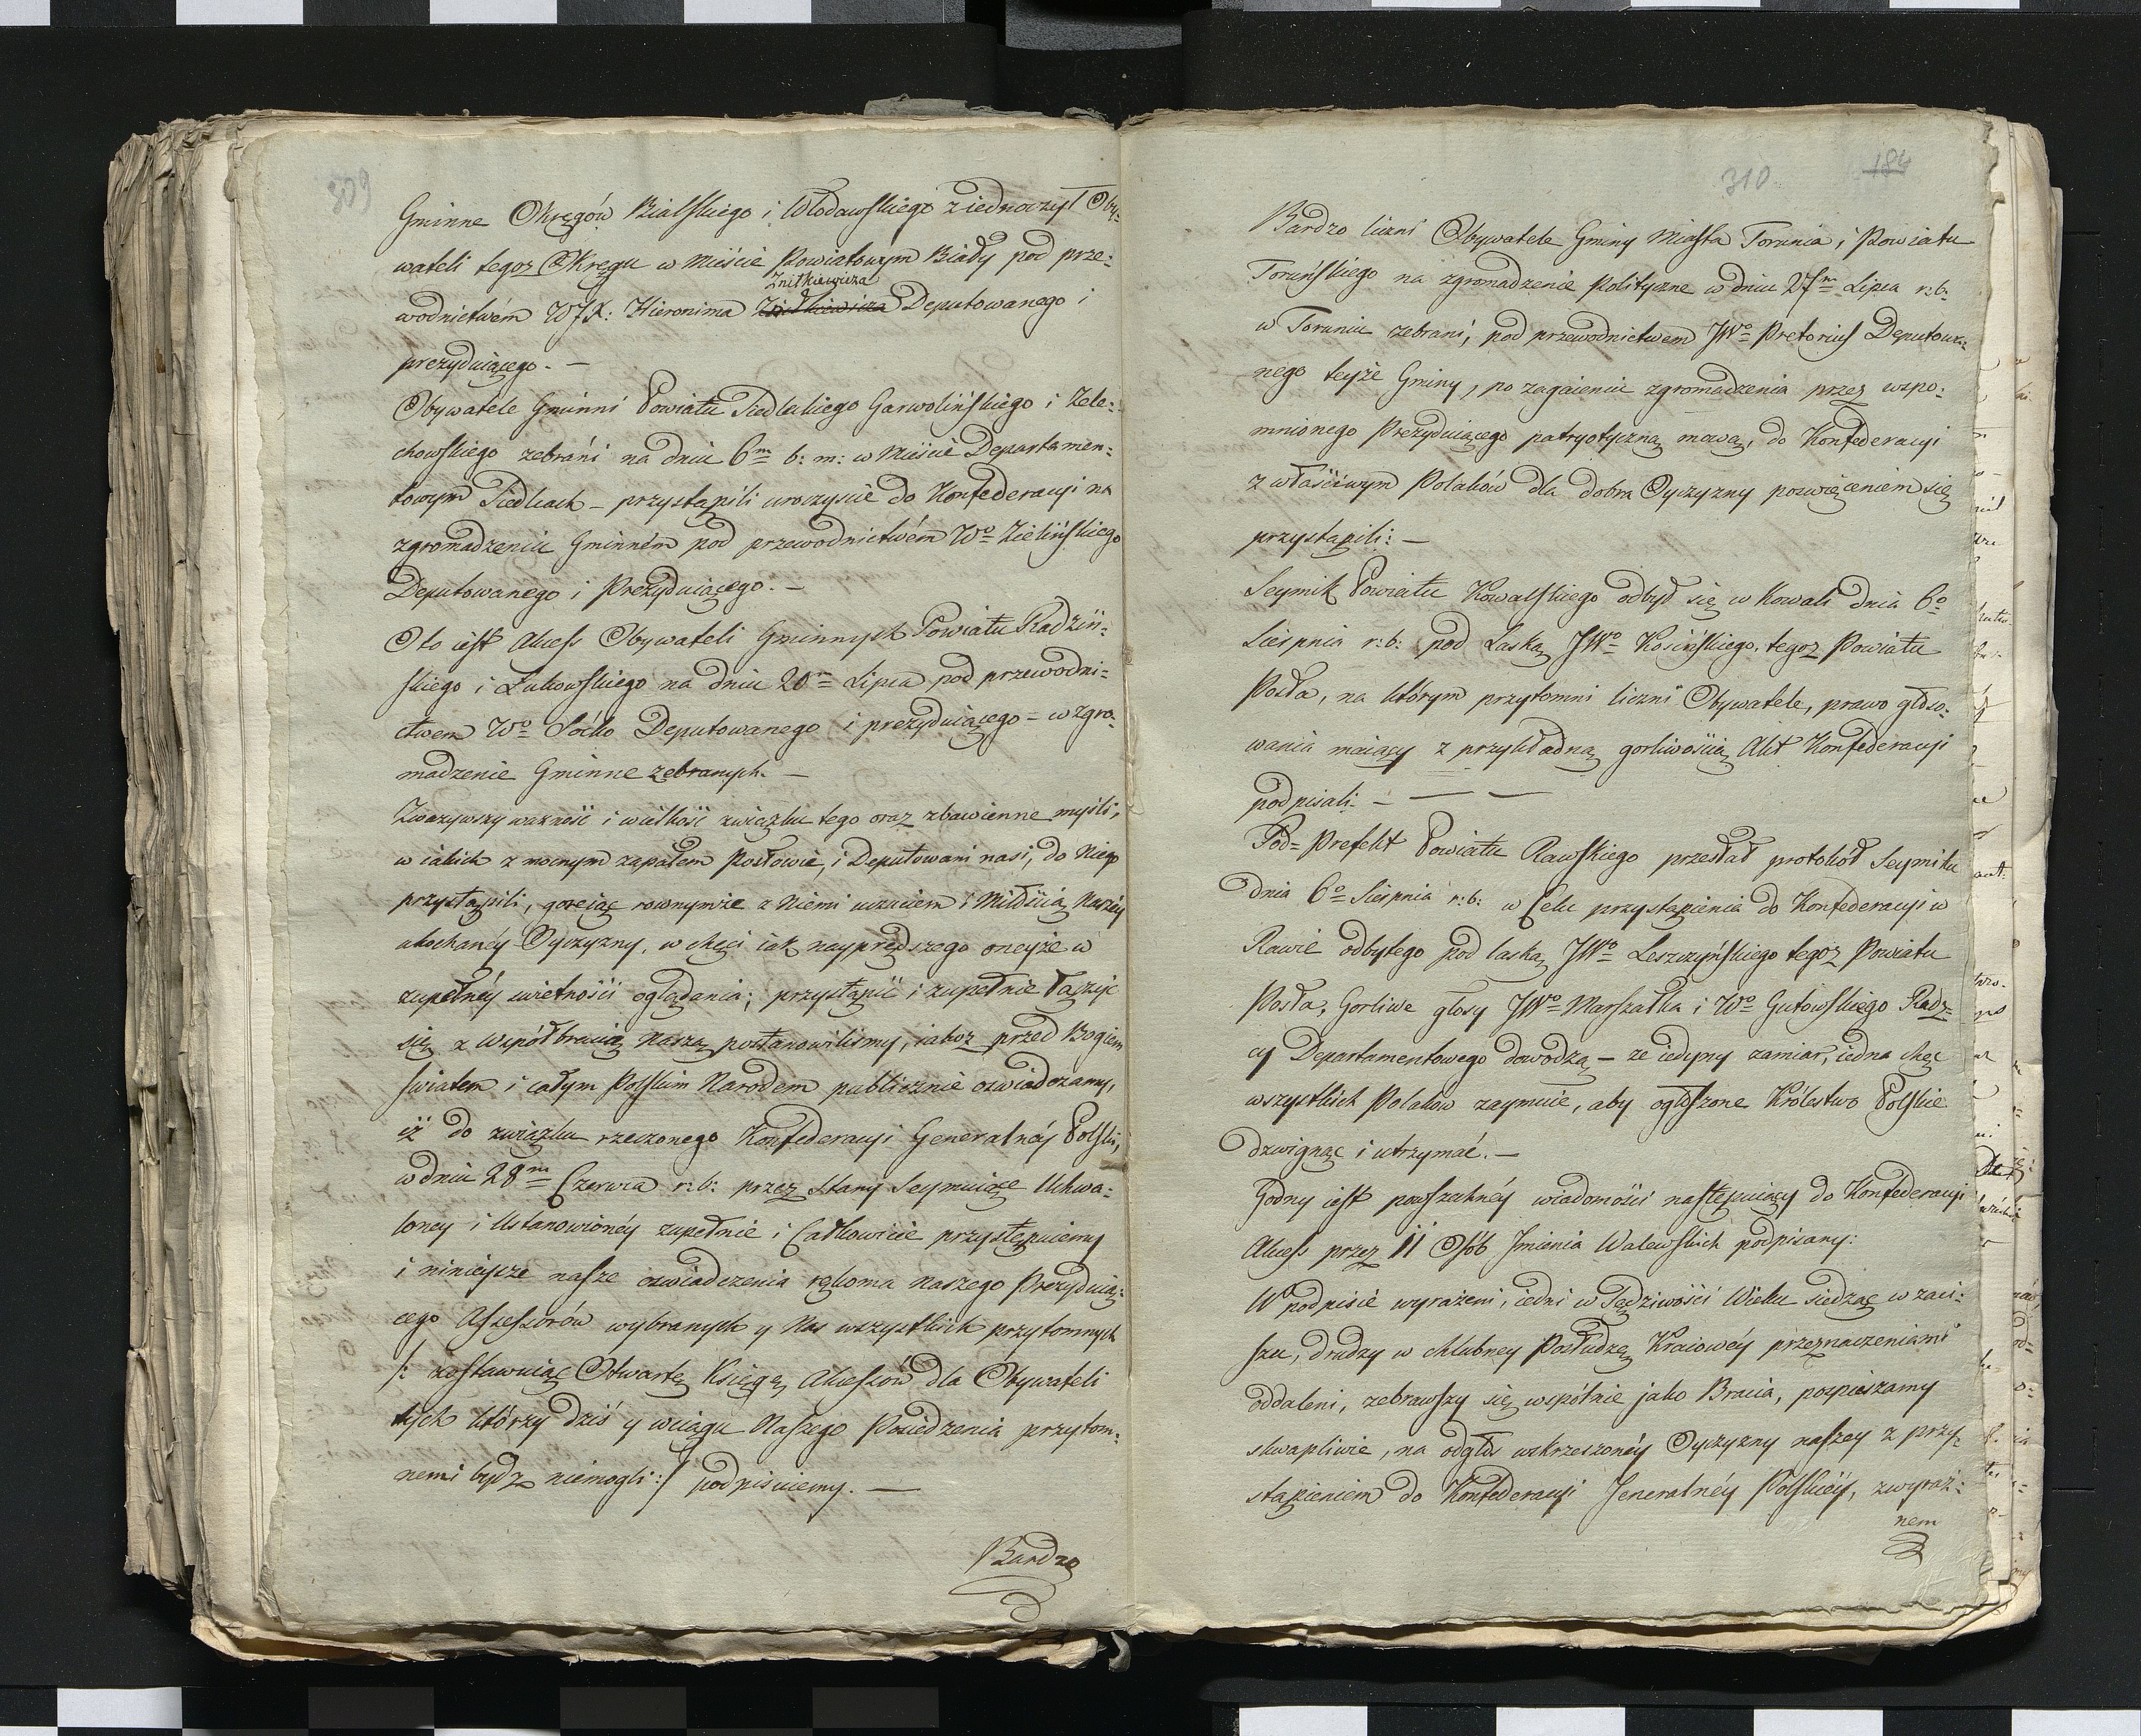 309
Gminne Okręgów Bialskiego i Włodawskiego ziednoczył Oby:
wateli tegoz Okręgu w Mieście Powiatowym Biały pod prze:
Znitkiewicza
wodnictwém WJX: Hieronima Deputowanego i
prezyduiącego. —
Obywatele Gminni Powiatu Siedleckiego Garwolińskiego i Zele:
chowskiego zebrani na dniu 6m b: m: w Mieście Departamen:
towym Siedlcach – przystąpili uroczyscie do Konfederacyi na
zgromadzeniu Gminném pod przewodnictwém Wo Zielińskiego
Deputowanego i Prezyduiącego. —
Oto iest Akcess Obywateli Gminnych Powiatu Radzyń:
skiego i Łukowskiego na dniu 20m Lipca pod przewodni=
ctwem Wo Soćko Deputowanego i prezyduiącego = w zgro:
madzenie Gminne zebranych. —
Zwazywszy wazność i wielkość związku tego oraz zbawienne myśli,
w iakich z mocnym zapałem Posłowie, i Deputowani nasi, do Niego
przystąpili, goreiąc rownymże z Niemi uczuciem i Miłością Naszéy
ukochanéy Oyczyzny, w chęci iak nayprędszego oneyże w
zupełnéy swietności oglądania; przystąpić i zupełnie łączyć
się z Współbracią Naszą postanowiliśmy, iakoz przed Bogiem
światem i całym Polskim Narodem publicznie oswiadczamy,
iż do związku rzeczonego Konfederacyi Generalnéy Polski,
w dniu 28m Czerwca r:b: przez Stany Seymuiące Uchwa:
loney i Ustanowionéy zupełnie i Całkowicie przystępuiemy
i ninieysze nasze oswiadczenia rękoma naszego Prezyduią:
cego Assessorów wybranych y Nas wszystkich przytomnych
/: zostawuiąc Otwartą Księgę Akcessów dla Obywateli
tych którzy dziś y wciągu Naszego Posiedzenia przytom:
nemi bydz niemogli:/ podpisuiemy. —
Bardzo
310 184
Bardzo liczni Obywatele Gminy Miasta Torunia i Powiatu
Toruńskiego na zgromadzenie Polityczne w dniu 27m Lipca r:b:
w Toruniu zebrani, pod przewodnictwem JWo Pretorius Deputowa:
nego teyże Gminy, po zagaieniu zgromadzenia przez wspo:
mnionego Prezyduiącego patryotyczną mową, do Konfederacyi
z właściwym Polaków dla dobra Oyczyzny poswięceniem się
przystąpili: —
Seymik Powiatu Kowalskiego odbył się w Kowali dnia 6o
Sierpnia r:b: pod Laską JWo Kosińskiego tegoz Powiatu
Posła, na którym przytomni liczni Obywatele, prawo głoso:
wania maiący z przykładną gorliwością Akt Konfederacyi
podpisali. — — —
Pod=Prefekt Powiatu Rawskiego przesłał protokół Seymiku
dnia 6o Sierpnia r:b: w Celu przystąpienia do Konfederacyi w
Rawie odbytego pod laską JWo Leszczyńskiego tegoz Powiatu
Posła, Gorliwe głosy JWo Marszałka i Wo Gutowskiego Radz=
cy Departamentowego dowodzą – ze iedyny zamiar, iedna chęć
wszystkich Polakow zaymuie, aby ogłoszone Królestwo Polskie
dzwignąć i utrzymać. —
Godny iest powszechnéy wiadomości następuiący do Konfederacyi
Akcess przez 11 Osób Jmienia Walewskich podpisany:
W podpisie wyrażeni, iedni w Sędziwości Wieku siedząc w zaci:
szu, drudzy w chlubney Posłudze Kraiowéy przeznaczeniami
oddaleni, zebrawszy się wspólnie jako Bracia, pospieszamy
skwapliwie, na odgłos wskrzeszonéy Oyczyzny naszey z przy=
stąpieniem do Konfederacyi Jeneralnéy Polskiéy, zwyraź:
nem